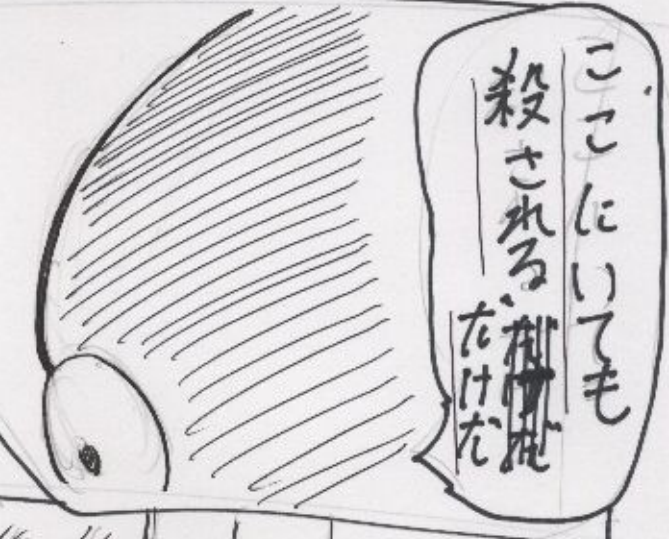 ここにいても
殺される
だけだ